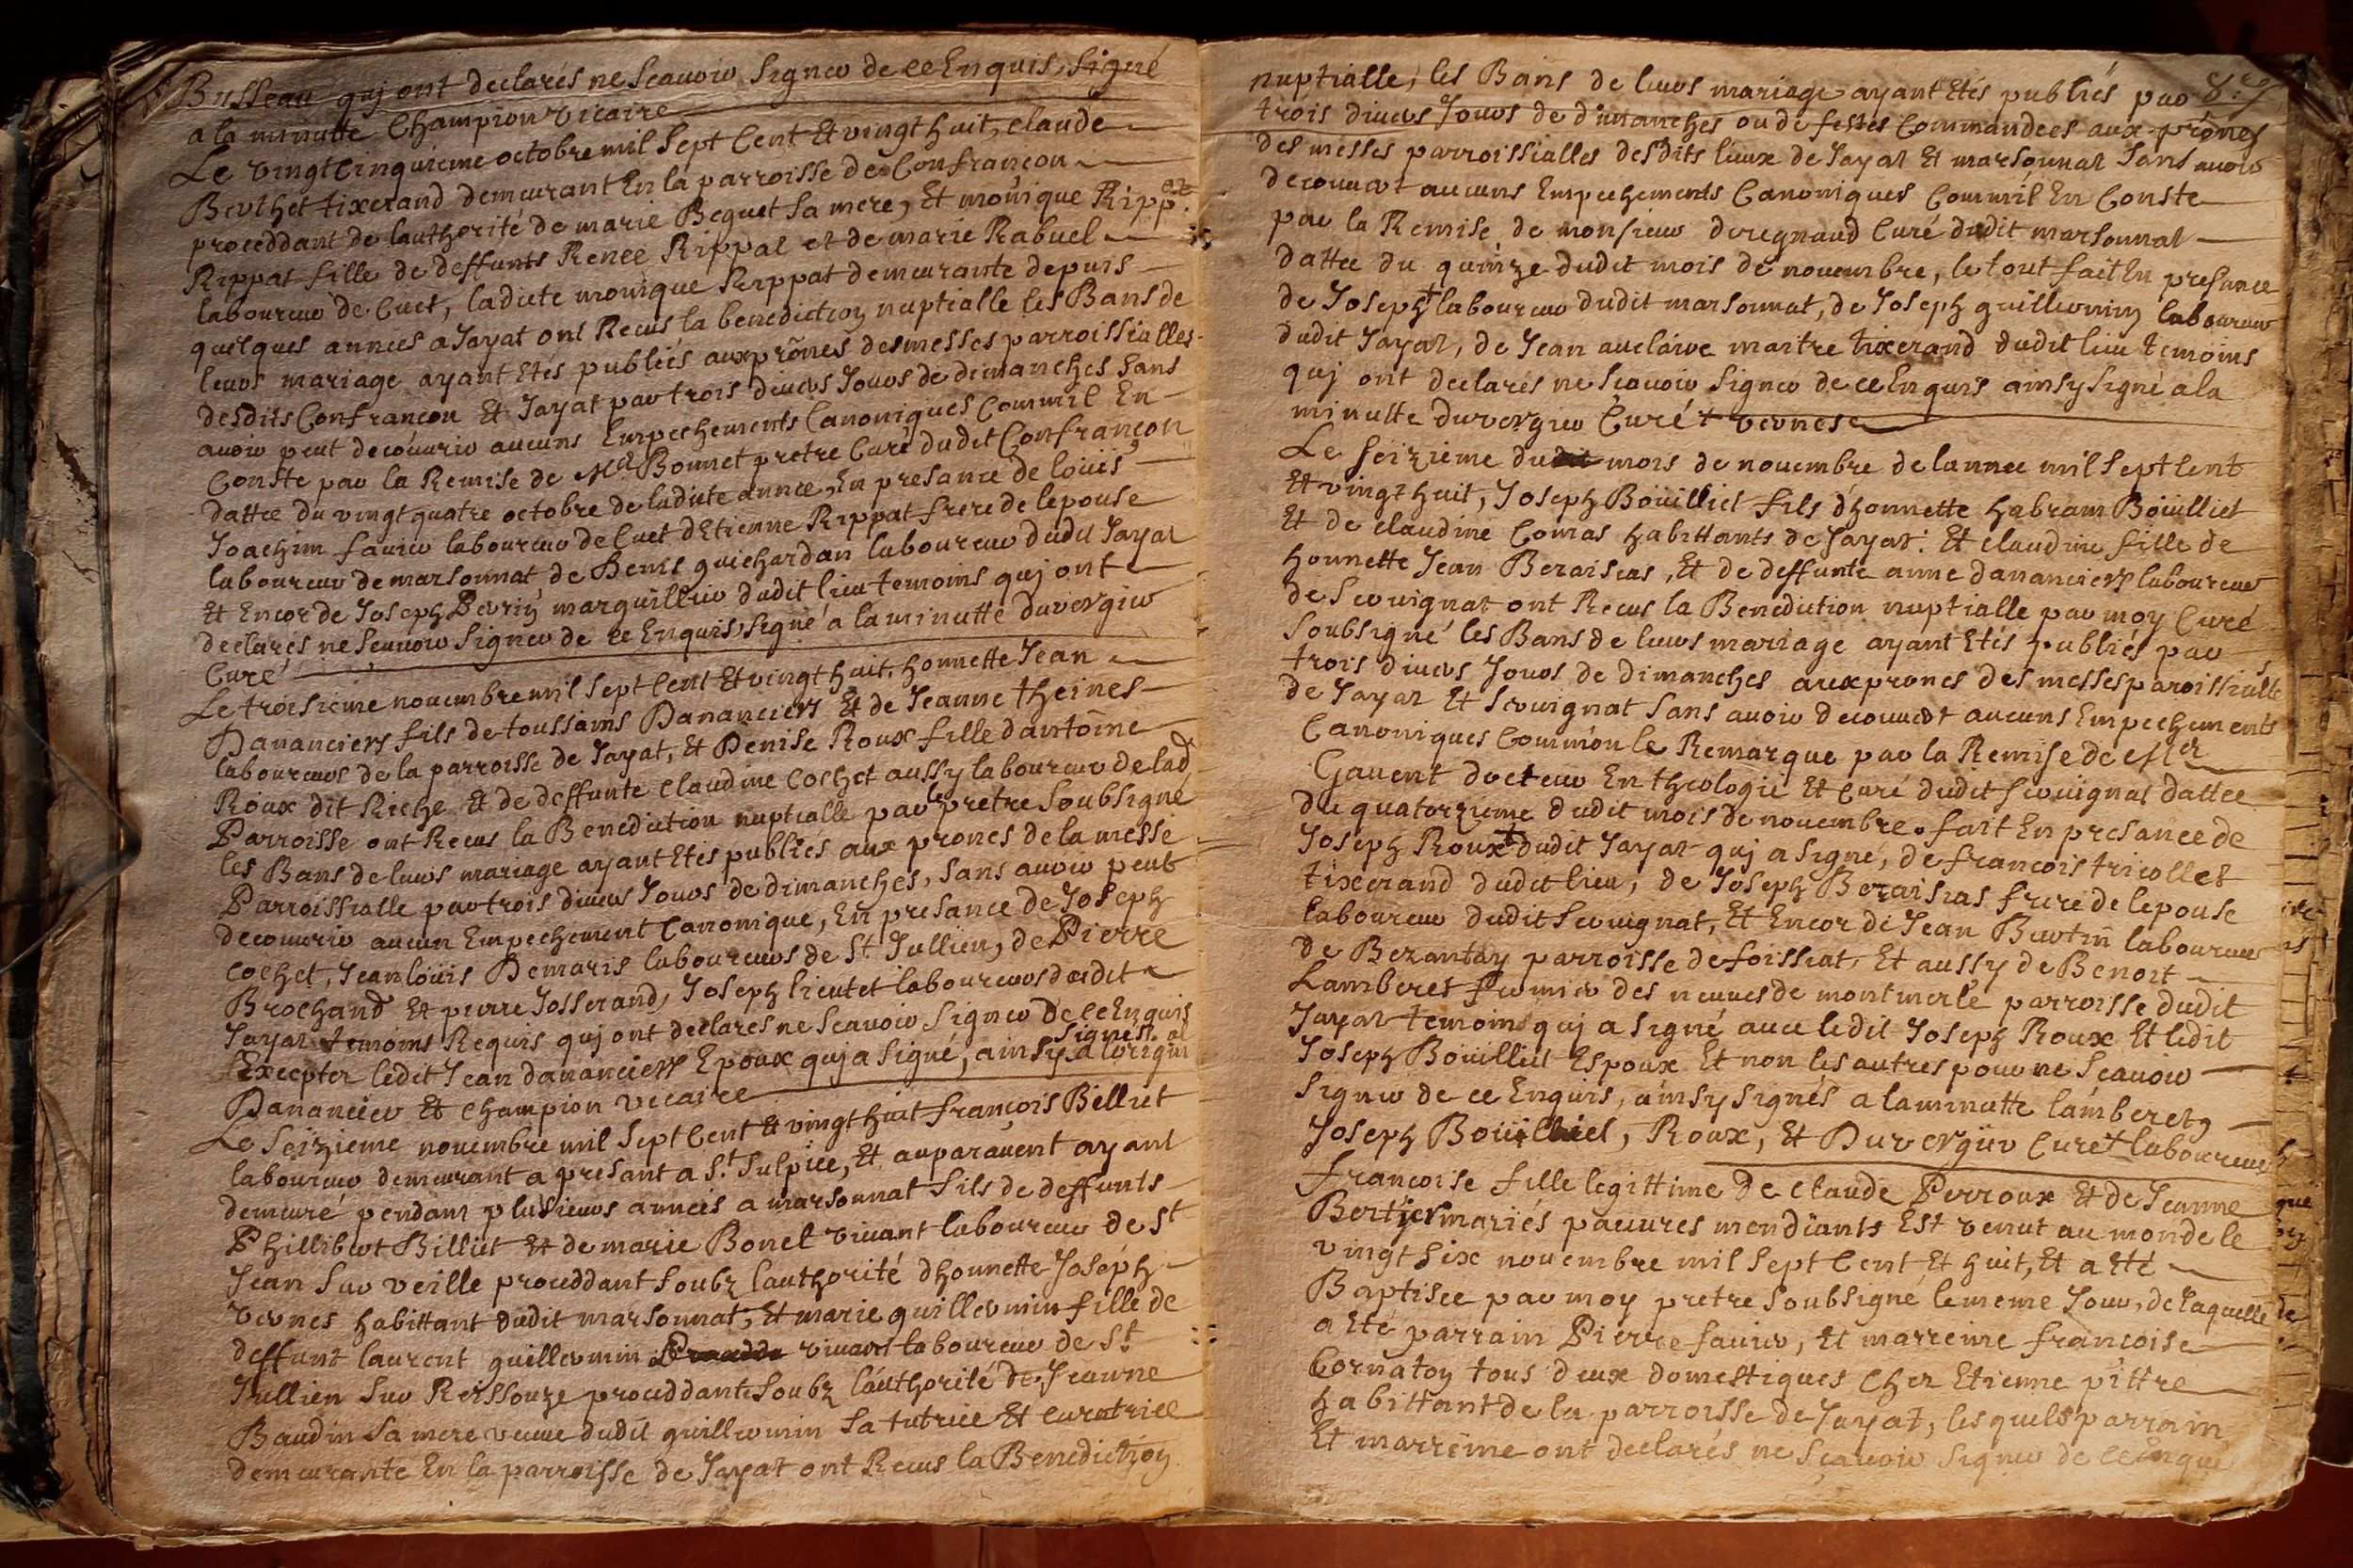 Busseau quj ont declarés ne scauoir signer de ce Enquis, signé
a la minutte Champion vicaire
Le vingt Cinquieme octobre mil sept Cent Et vingt huit, claude
Berthet tixerand demeurant En la parroisse de Confrancon
proceddant de lauthorité de marie Beguet sa mere, Et monique Ripp.at
Rippat fille de deffunts Renee Rippat et de marie Rabuel
laboureur de Cuet, ladicte monique Rippat demeurante depuis
quelques annees a Jayat ont Recus la benediction nuptialle les Bans de
leurs mariage ayant Etés publiés aux prônes des messes parroissialles
desdits Confrancon Et Jayat par trois diuers Jours de dimanches sans
auoir peut decouurir aucuns Empechements Canoniques Commil En
Conste par la Remise de Mr Bonnet pretre Curé dudit Confrançon
dattee du vingt quatre octobre de ladicte annee, En presance de loüis
Joachim fauier laboureur de Cuet dEtienne Rippat frere de lepouse
laboureur de marsonnat de Benis guichardan laboureur dudit Jayat
Et Encor de Joseph Perrin marguillier dudit lieu temoins quj ont
declarés ne scauoir signer de ce Enquis, signé a la minutte duvergier
Curé
Le troisieme nouembre mil sept Cent Et vingt huit, honnette Jean
Dananciers fils de toussains Dananciers Et de Jeanne theines
laboureurs de la parroisse de Jayat, Et Denise Roux fille dantoine
Roux dit Riche Et de deffunte claudine Cochet aussy laboureur de lad.
Parroisse ont Recus la Benediction nuptialle par le pretre soubsigné
les Bans de leurs mariage ayant Etés publiés aux prones de la messe
Parroissialle par trois diuers Jours de dimanches, sans auoir peut
decouurir aucun Empechement Canonique, En presance de Joseph
cochet, Jean loüis Demaris laboureurs de St Jullien, de Pierre
Brochand Et pierre Josserand, Joseph lieutet laboureurs dudit
Jayat temoins Requis quj ont declarés ne scauoir signer de ce Enquis
Excepter ledit Jean dananciers Epoux quj a signé, ainsy signés a lorigin al
Danancier Et Champion vicaire
Le seizieme nouembre mil sept Cent Et vingt huit françois Billiet
laboureur demeurant a presant a St Sulpice, Et auparauent ayant
demeuré pendant plusieurs annees a marsonnat fils de deffunts
Phillibert Billiet Et de marie Bonel viuant laboureur de St
Jean sur veille proceddant soubz lauthorité dhonnette Joseph
vernes habittant dudit marsonnat, Et marie guillermin fille de
deffunt laurent guillermin viuant laboureur de St
Jullien sur Reissouze proceddante soubz lauthorité de Jeanne
Baudin sa mere veuue dudit guillermin sa tutrice Et curatrice
demeurante En la parroisse de Jayat ont Recus la Benediction
nuptialle, les Bans de leurs mariage ayant Etés publiés par
trois diuers Jours de dimanches ou de festes Commandees aux prônes
des messes parroissialles desdits lieux de Jayat Et marsonnat sans auoir
decouuert aucuns Empechements Canoniques Commil En Conste
par la Remise de monsieur deregnaud Curé dudit marsonnat
dattee du quinze dudit mois de nouembre, le tout fait En presance
de Joseph + laboureur dudit marsonnat, de Joseph guillermin laboureur
dudit Jayat, de Jean auclaire maitre tixerand dudit lieu temoins
quj ont declarés ne scauoir signer de ce Enquis ainsy signé a la
minutte duvergier Curé + vernese
Le seizieme du mois de nouembre de lannee mil sept Cent
Et vingt huit, Joseph Boüilliet fils dhonnette habram Boüilliet
Et de claudine Comas habittants de Jayat. Et claudine fille de
honnette Jean Beraisias, Et de deffunte anne dananciers laboureur
de Scouignat ont Recus la Benediction nuptialle par moy Curé
soubsigné les Bans de leurs mariage ayant Etés publiés par
trois diuers Jours de dimanches aux prones des messes paroissialles
de Jayat Et Scouignat sans auoir decouuert aucuns Empechements
Canoniques Comme on le Remarque par la Remise de Mer
Gauent docteur En theologie Et Curé dudit scouignat dattee
du quatorzieme dudit mois de nouembre. fait En presance de
Joseph Roux + dudit Jayat quj a signé, de francois tricollet
tixerand dudit lieu, de Joseph Beraisias frere de lepouse
laboureur dudit Scouignat, Et Encor de Jean Burtin laboureur
de Bezantay parroisse de foissiat, Et aussy de Benoit
Lamberet fermier des neuues de montmerle parroisse dudit
Jayat temoins quj a signé auec ledit Joseph Roux Et ledit
Joseph Boüilliet Espoux Et non les autres pour ne scauoir
signer de ce Enquis, ainsy signés a la minutte lamberet,
Joseph Boüilliet, Roux, Et Duvergier Curé + laboureur
françoise fille legittime de claude Perroux Et de Jeanne
Bertier mariés pauures mendiants Est venut au monde le
vingt six nouembre mil sept Cent Et huit, Et a Eté
Baptisee par moy pretre soubsigné le meme Jour, de laquelle
a Eté parrain Pierre fauier, Et marreine francoise
Cornaton tous deux domestiques Chez Etienne pittre
habittant de la parroisse de Jayat, lesquels parrain
Et marreine ont declarés ne sçauoir signer de ce Enquis